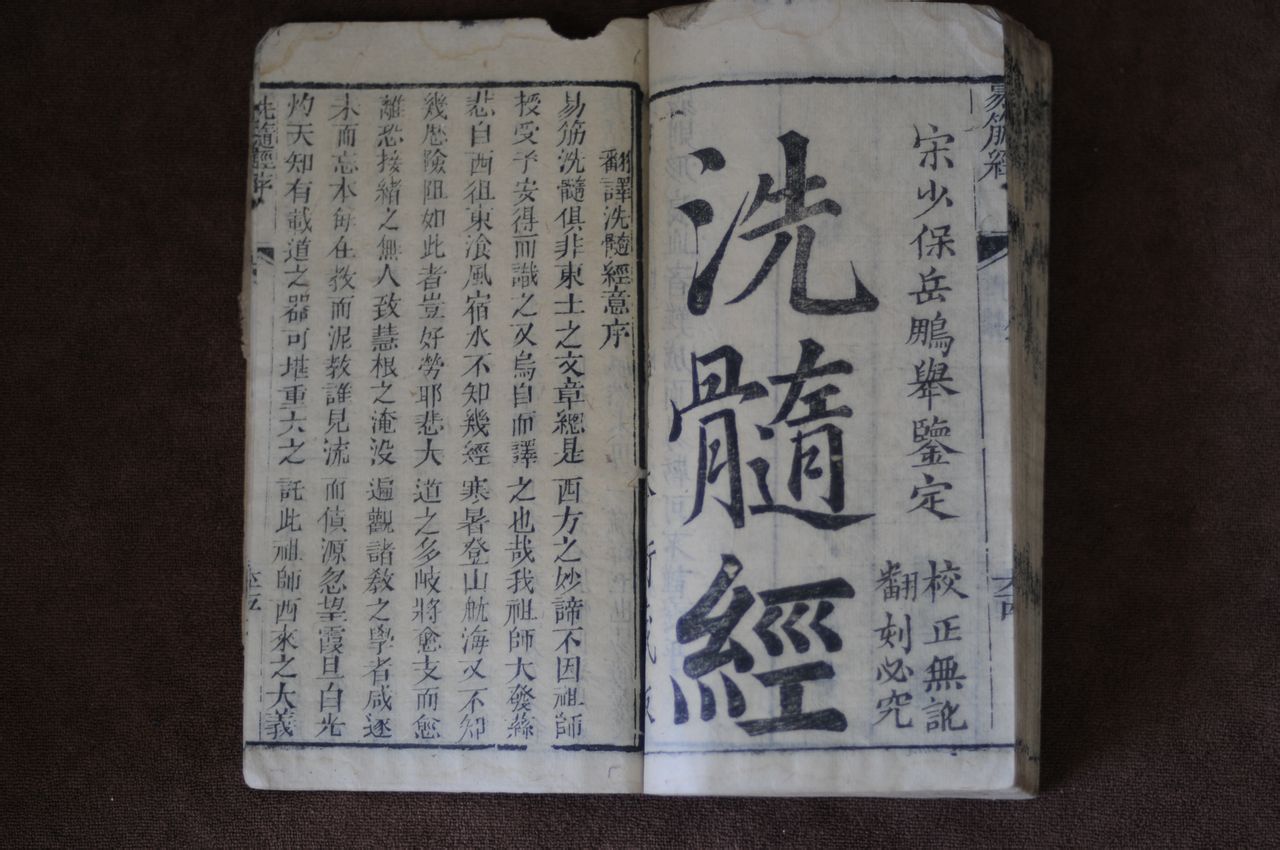 易筋經
宋少保岳鵬舉鑒定
校正無訛
翻刻必究
洗髓經
翻譯洗髓經意序
易筋洗髓俱非東土之文章總是西方之妙諦不因祖師
授受予安得而識之又烏自而譯之也哉我祖師大發慈
悲自西徂東飡風宿水不知幾經寒暑登山航海又不知
幾歷險阻如此者豈好勞耶悲大道之多岐將愈支而愈
離恐接緒之無人致慧根之淹没遍觀諸教之學者咸逐
末而忘本每在教而泥教誰見流而尋源忽望霞旦白光
灼天知有載道之器可堪重大之託此祖師西來之大義
洗髓經序